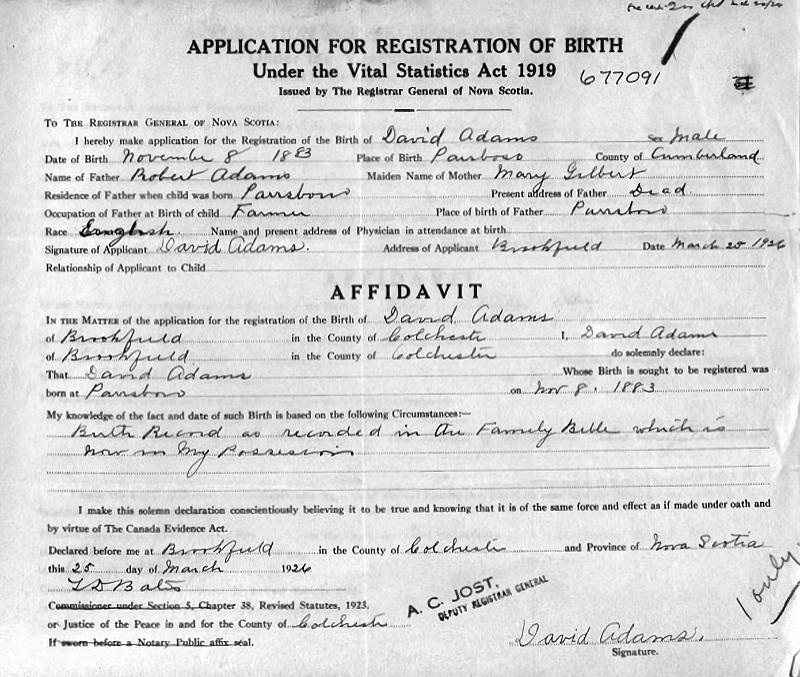 APPLICATION FOR REGISTRATION OF BIRTH
Under the Vital Statistics Act 1919 677091
Issued by The Registrar General of Nova Scotia.
TO THE REGISTRAR GENERAL OF NOVA SCOTIA:
I hereby make application for the Registration of the Birth of David Adams Sex Male
Date of Birth November 8 1883 Place of Birth Parrsboro County of Cumberland
Name of Father Robert Adams Maiden Name of Mother Mary Gilbert
Residence of Father when child was born Parrsboro Present address of Father Dead
Occupation of Father at Birth of child Farmer Place of birth of Father Parrsboro
Race English Name and present address of Physician in attendance at birth
Signature of Applicant David Adams. Address of Applicant Brookfield Date March 25 1926
Relationship of Applicant to Child
AFFIDAVIT
IN THE MATTER of the application for the registration of the Birth of David Adams
of Brookfield in the County of Colchester I, David Adams
of Brookfield in the County of Colchester do solemnly declare:
That David Adams Whose Birth is sought to be registered was
born at Parrsboro on Nov 8. 1883
My knowledge of the fact and date of such Birth is based on the following Circumstances:—
Birth Record as recorded in the Family Bible which is
now in My Possession
I make this solemn declaration conscientiously believing it to be true and knowing that it is of the same force and effect as if made under oath and
by virtue of The Canada Evidence Act.
Declared before me at Brookfield in the County of Colchester and Province of Nova Scotia
this 25 day of March 1926
Commissioner under Section 5, Chapter 38, Revised Statutes, 1923,
A. C. JOST,
DEPUTY REGISTRAR GENERAL
1 only.
or Justice of the Peace in and for the County of Colchester
If sworn before a Notary Public affix seal.
David Adams.
Signature.